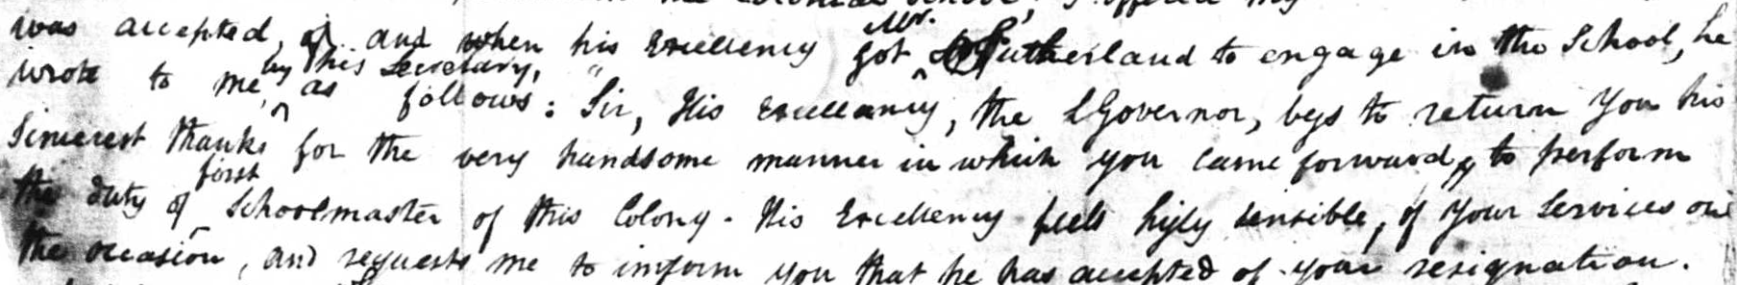 the Colonial School, I offered my
was accepted, and when his Excellency got Mr. Sutherland to engage in the School, he
wrote to me, by his Secretary, as follows: "Sir, His Excellency, the LGovernor, begs to return You his
Sincerest thanks for the very handsome manner in which you came forward, to perform
the duty of first Schoolmaster of this Colony - His Excellency feels hijly sensible, of Your Services on
the occasion, and requests me to inform you that he has accepted of your resignation.